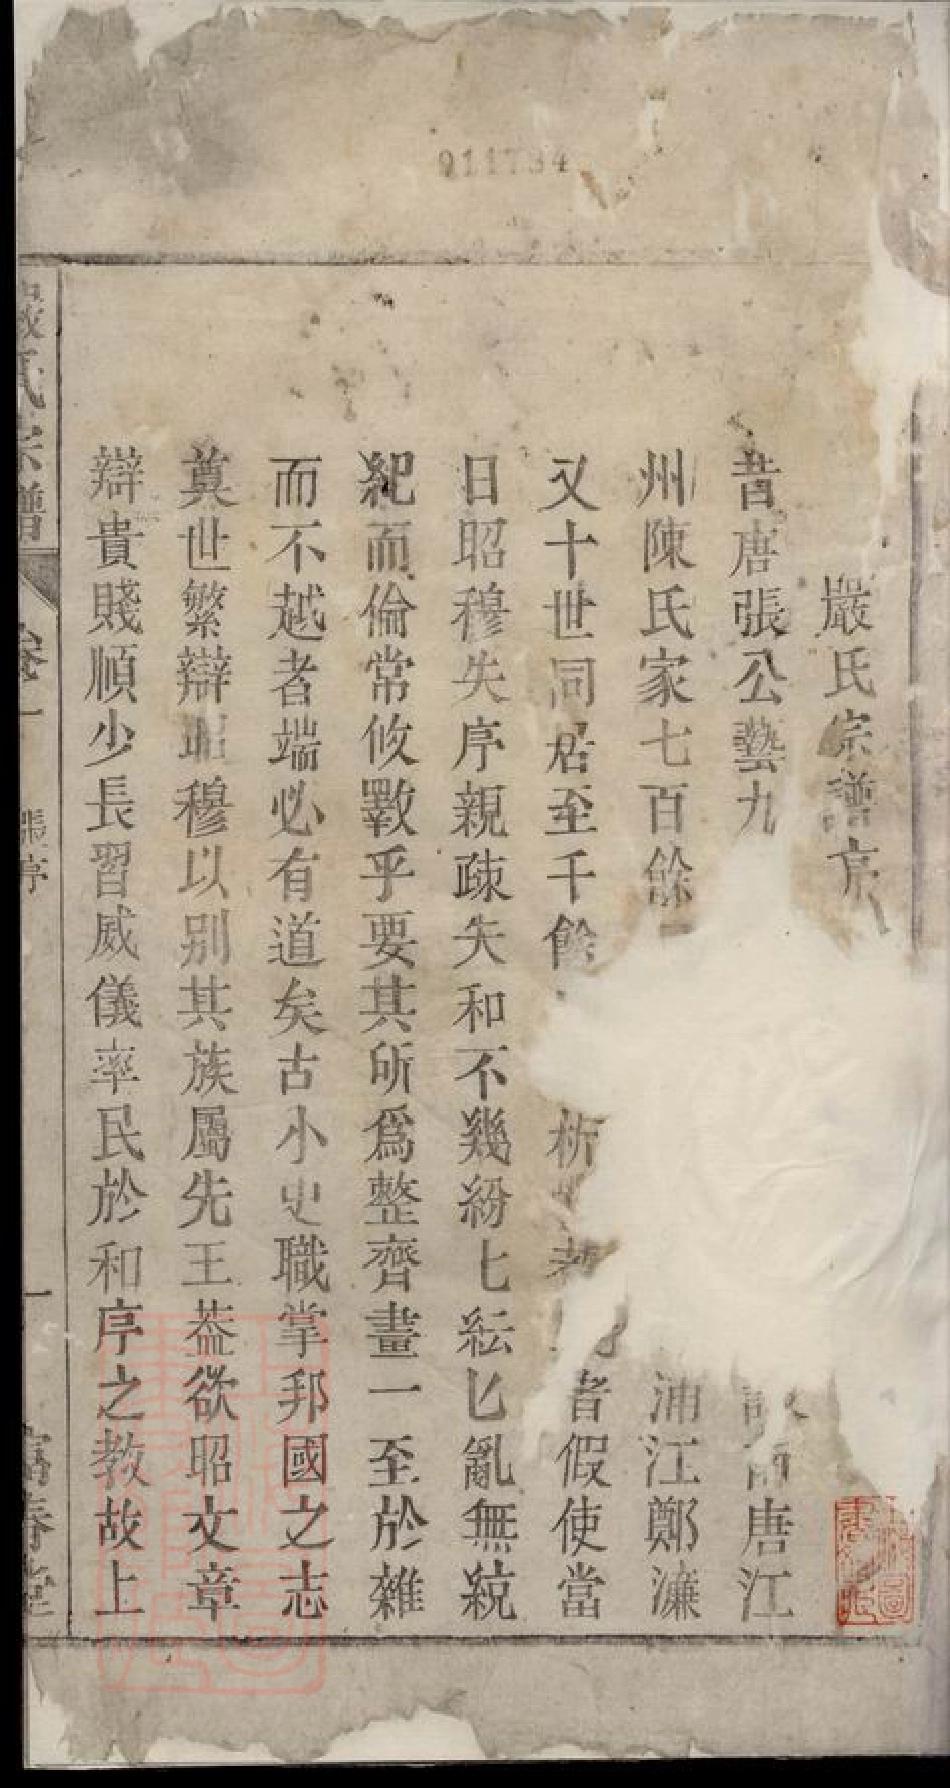 911734
嚴氏宗譜序
昔唐張公藝九 唐江
州陳氏家七百餘 浦江鄭濂
又十世同居至千餘 析 者假使當
日昭穆失序親疎失和不幾紛匕紜匕亂無統
紀而倫常攸斁乎要其所爲整齊畫一至於雜
而不越者端必有道矣古小史職掌邦國之志
奠世繁辯昭穆以别其族屬先王葢欲昭文章
辯貴賤順少長習威儀率民於和序之教故上
嚴氏宗譜 卷一 張序 一 富春堂